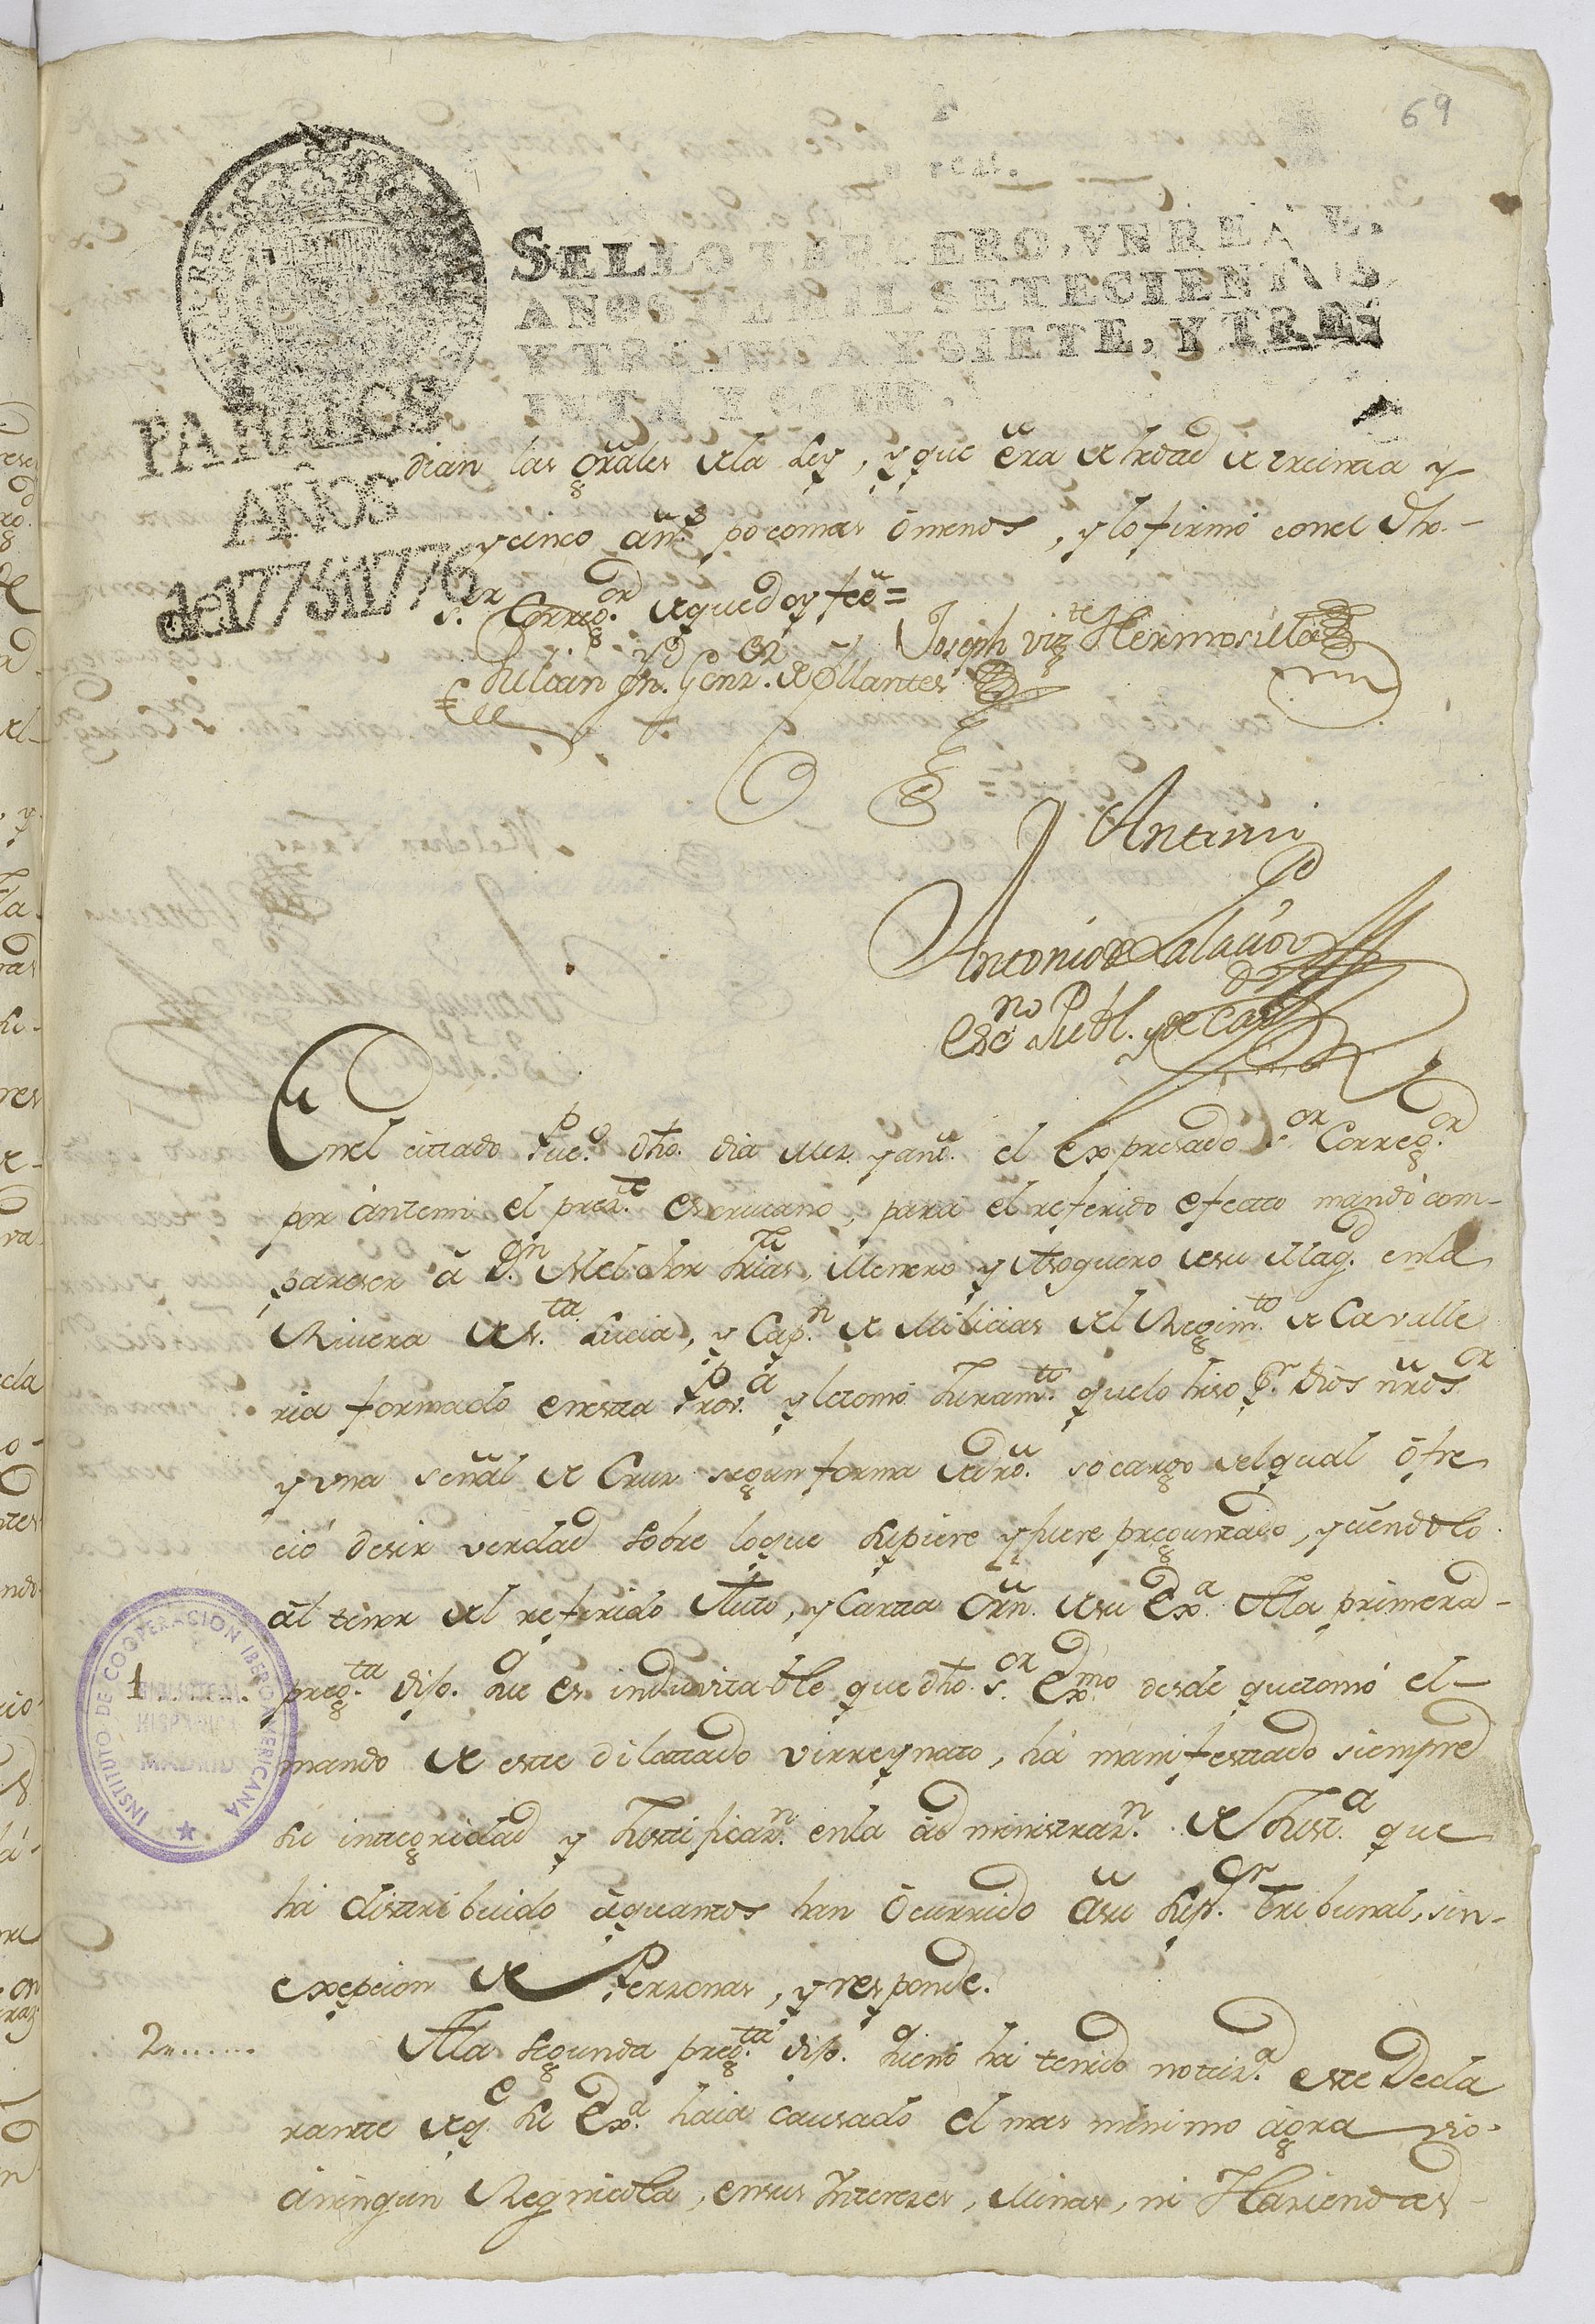 69
Vn real.
SELLO TERCERO, VN REAL,
AÑOS DE MIL SETECIENTOS
Y TREINTA Y SIETE, Y TREI
INTA Y OCHO.
PARA LOS
AÑOS
de 1775 i 1776
dian las gräles de la Ley, y que era de hedad de treinta y
y cinco añ.s poco mas ô menos, y lo firmò con el dho.
s.or Correg.or de que doy feè=
Joseph viz.te Hermosilla
Julian Gonz. de Ollantes
Ante mi
Antonio de Salauor
Esc.no Publ. y de Cav.do
En el citado Pue.o dho. dia mes y añ. el expresado s.or Correg.or
por ante mi el prez.te escrivano, para el referido efecto mandò com-
pareser â D.n Melchor Frias, Minero y Asoguero de su Mag.d en la
Rivera de S.ta Lucia, y Cap.n de Milicias del Regim.to de Cavalle
ria formado en esta Prov.a y le tomò Juram.to que lo hiso p.r Dios nrô s.or
y vna señal de Cruz segun forma de dro. so cargo del qual ofre
ciò desir verdad sobre lo que supiere y fuere preguntado, y siendolo
al tenor del referido Auto, y Carta Orn. de su Ex.a A la primera
1...... preg.ta dijo. Que es induvitable que dho. s.or Ex.mo desde que tomò el
mando de este dilatado virreynato, hà manifestado siempre
su integridad y Justificaz.n en la administraz.n de Just.a que
hà distribuido à quantos han ôcurrido a su Sup.or Tribunal, sin
exepcion de Perzonas, y responde.
2...... A la segunda preg.ta dijo. Que no hà tenido notiz.a este Decla
rante de q.e su Ex.a haia causado el mas minimo agravio
à ningun Regnicola, en sus Interezes, Minas, ni Hasiendas
INSTITUTO DE COOPERACION IBEROAMERICANA
BIBLIOTECA
HISPANICA
MADRID